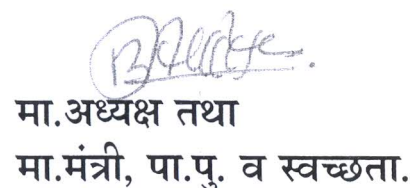 मा.अध्यक्ष तथा
मा.मंत्री, पा.पु. व स्वच्छता.